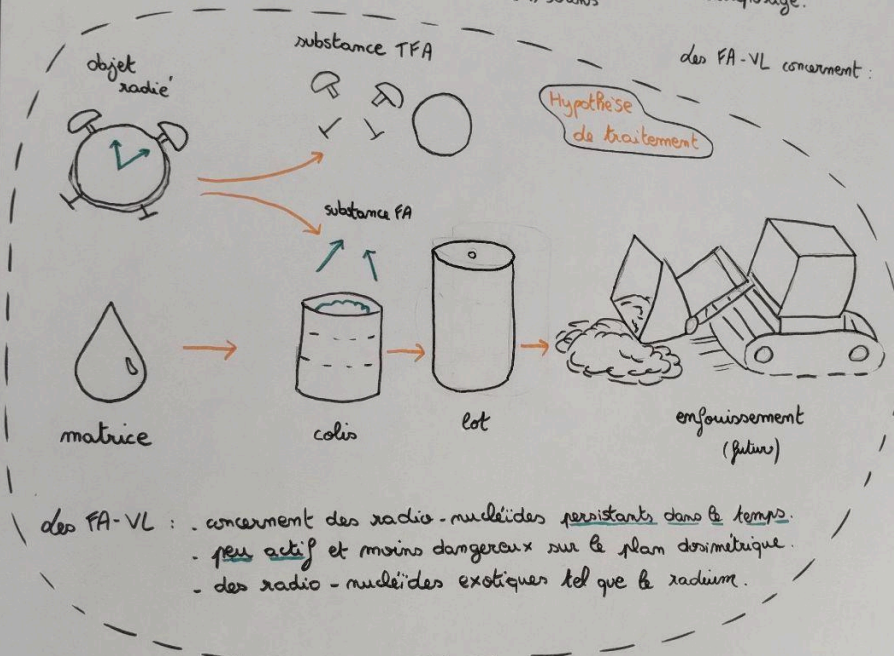 des FA-VL concernent :
substance TFA
objet
radié
Hypothèse
de traitement
substance FA
matrice
colis
lot
enfouissement
(futur)
des FA-VL : - concernent des radio-nucléïdes persistants dans le temps.
- peu actif et moins dangereux sur le plan dosimétrique.
- des radio-nucléïdes exotiques tel que le radium.